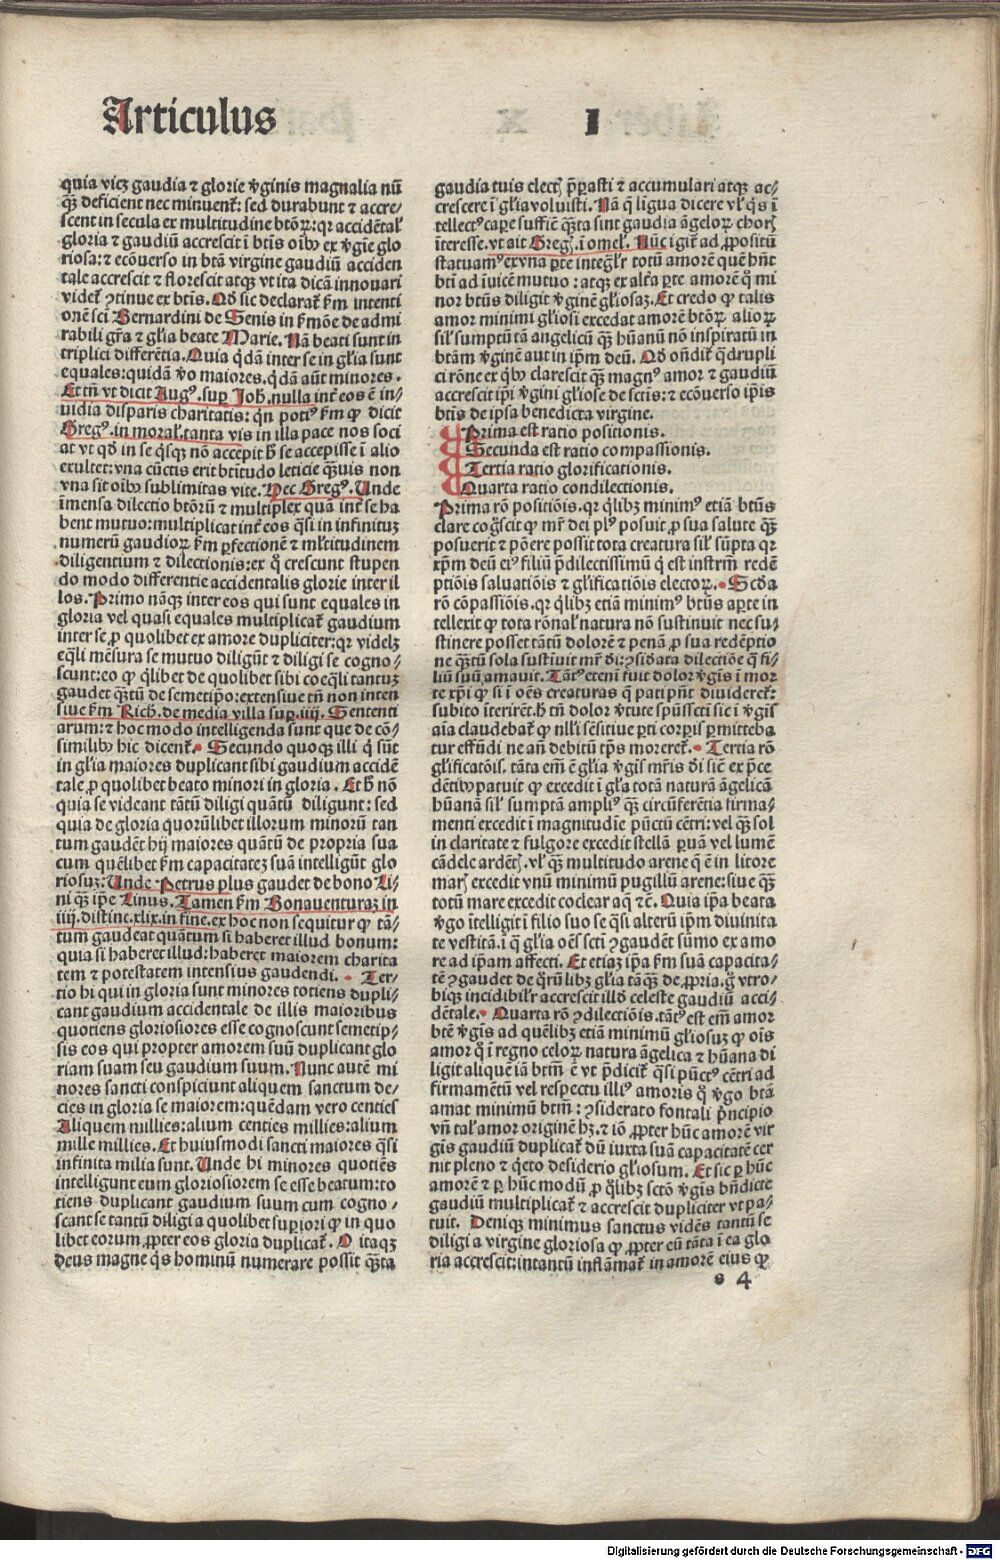 Articulus I
quia vicꝫ gaudia ⁊ glorie v̓ginis magnalia nū
qꝫ deficient nec minuent᷑: sed durabunt ⁊ accre⸗
scent in secula ex multitudine btōꝝ: qꝛ accidētal̓
gloria ⁊ gaudiū accrescit ī btīs oībꝰ ex v̓gīe glo
riosa: ⁊ ecōuerso in btā virgine gaudiū acciden
tale accrescit ⁊ florescit atqꝫ vt ita dicā innouari
videt᷑ ꝯtinue ex btīs. Qḋ sic declarat᷑ ẜm intenti
onē scī Bernardini de Senis in ẜmōe de admi
rabili gr̄a ⁊ gl̓ia beate Marie. Nā beati sunt in
triplici differētia. Quia q̇dā inter se in gl̓ia sunt
equales: quidā v̓o maiores. q̇dā aūt minores.
Et tn̄ vt dicit Augꝰ. suꝑ Joh̄. nulla int᷑ eos ē in⸗
uidia disparis charitatis: qn̄ potiꝰ ẜm ꝙ dicit
Gregꝰ. in moral̓. tanta vis in illa pace nos soci
at vt qḋ in se q̇sqꝫ nō accepit h̄ se accepisse ī alio
exultet: vna cūctis erit btītudo leticie q̄uis non
vna sit oībꝰ sublimitas vite. Hec Gregꝰ. Unde
īmensa dilectio btōrū ⁊ multiplex qua int᷑ se ha
bent mutuo: multiplicat int᷑ eos q̄si in infinituꝫ
numerū gaudioꝝ ẜm ꝑfectionē ⁊ ml̓titudinem
diligentium ⁊ dilectionis: ex q̇ crescunt stupen
do modo differentie accidentalis glorie inter il
los. Primo nāqꝫ inter eos qui sunt equales in
gloria vel quasi equales multiplicat᷑ gaudium
inter se ꝓ quolibet ex amore dupliciter: qꝛ videlꝫ
eq̄li mēsura se mutuo diligūt ⁊ diligi se cogno⸗
scunt: eo ꝙ q̇libet de quolibet sibi coeq̄li tantuꝫ
gaudet q̄ꝫtū de semetip̄o: extensiue tn̄ non inten
siue ẜm Rich. de media villa suꝑ. iiij. Sententi
arum: ⁊ hoc modo intelligenda sunt que de cō⸗
similibꝰ hic dicent᷑. Secundo quoqꝫ illi q̇ sūt
in gl̓ia maiores duplicant sibi gaudium accidē
tale ꝓ quolibet beato minori in gloria. Et h̄ nō
quia se videant tātū diligi quātū diligunt: sed
quia de gloria quorūlibet illorum minorū tan
tum gaudēt hij maiores quātū de propria sua
cum quēlibet ẜm capacitateꝫ suā intelligūt glo
riosuꝫ: Unde Petrus plus gaudet de bono Li⸗
ni q̄ꝫ ip̄e Linus. Tamen ẜm Bonauenturaꝫ in
iiij. distinc. xlix. in fine. ex hoc non sequitur ꝙ tā⸗
tum gaudeat quātum si haberet illud bonum:
quia si haberet illud: haberet maiorem charita
tem ⁊ potestatem intensius gaudendi. Ter⸗
tio hi qui in gloria sunt minores totiens dupli⸗
cant gaudium accidentale de illis maioribus
quotiens gloriosiores esse cognoscunt semetip⸗
sis eos qui propter amorem suū duplicant glo
riam suam seu gaudium suum. Nunc autē mi
nores sancti conspiciunt aliquem sanctum de⸗
cies in gloria se maiorem: quēdam vero centies
Aliquem millies: alium centies millies: alium
mille millies. Et huiusmodi sancti maiores q̄si
infinita milia sunt. Unde hi minores quotiēs
intelligunt eum gloriosiorem se esse beatum: to
tiens duplicant gaudium suum cum cogno⸗
scant se tantū diligi a quolibet suꝑiori ꝙ in quo
libet eorum ꝓpter eos gloria duplicat᷑. O itaqꝫ
deus magne q̇s hominū numerare possit q̄ꝫta
gaudia tuis elect̄ p̄ꝑasti ⁊ accumulari atqꝫ ac⸗
crescere ī gl̓ia voluisti. Nā q̄ līgua dicere vl̓ q̇s ī
tellectꝰ caꝑe suffic̄ q̄ꝫta sint gaudia āgeloꝝ choꝝ
īteresse. vt ait Greḡ. ī omel̓. Nūc igit᷑ ad ꝓpositū
statuamꝰ ex vna ꝑte integr̄l̓r totū amorē quē hn̄t
btī ad īuicē mutuo: atqꝫ ex alt̓a ꝑte amorē q̇ mi
nor btūs diligit v̓ginē gl̓iosaꝫ. Et credo ꝙ talis
amor minimi gl̓iosi excedat amorē btōꝝ alioꝝ
sil̓ sumptū tā angelicū q̄ꝫ hūanū nō inspiratū in
btām v̓ginē aut in ip̄m deū. Qḋ on̄dit᷑ q̄drupli
ci rōne ex q̇bꝰ clarescit q̄ꝫ magnꝰ amor ⁊ gaudiū
accrescit ip̄i v̓gini gl̓iose de sctīs: ⁊ ecōuerso ip̄is
btīs de ipsa benedicta virgine.
Prima est ratio positionis.
Secunda est ratio compassionis.
Tertia ratio glorificationis.
Quarta ratio condilectionis.
Prima rō positiōis. qꝛ q̇libꝫ minimꝰ etiā btūs
clare cog̓scit ꝙ mr̄ dei plꝰ posuit ꝓ sua salute q̄ꝫ
posuerit ⁊ pōere possit tota creatura sil̓ sūpta qꝛ
xp̄m deū eiꝰ filiū p̄dilectissimū q̇ est instrm̄ redē
ptiōis saluatiōis ⁊ gl̓ificatiōis electoꝝ. Scḋa
rō cōpassiōis. qꝛ q̇libꝫ etiā minimꝰ btūs aꝑte in
tellexit ꝙ tota rōnal̓ natura nō sustinuit nec su⸗
stinere posset tātū dolorē ⁊ penā ꝓ sua redēptio
ne q̄ꝫtū sola sustinuit mr̄ dī: ꝯsid̓ata dilectiōe q̄ fi⸗
liū suū amauit. Tātꝰ eteni fuit dolor v̓gīs ī mor
te xp̄i ꝙ si ī oēs creaturas q̄ pati pn̄t diuideret᷑:
subito īterirēt. h̄ tn̄ dolor v̓tute spūssctī sic ī v̓gīs
aīa claudebat᷑ ꝙ nll̓i sēsitiue ꝑti corꝑis ꝑmitteba
tur effūdi ne an̄ debitū tp̄s moreret᷑. Tertia rō
gl̓ificatōis. tāta em̄ ē gl̓ia v̓gīs mr̄is dī sic̄ ex p̄ce
dētibꝰ patuit ꝙ excedit ī gl̓a totā naturā āgelicā
hūanā sil̓ sumptā ampliꝰ q̄ꝫ circūferētia firma⸗
menti excedit ī magnitudīe pūctū cētri: vel q̄ꝫ sol
in claritate ⁊ fulgore excedit stellā ꝑuā vel lumē
cādele ardēt̄. vl̓ q̄ꝫ multitudo arene q̄ ē in litore
mar̄ excedit vnū minimū pugillū arene: siue q̄ꝫ
totū mare excedit coclear aq̄ ⁊c̄. Quia ip̄a beata
v̓go ītelligit ī filio suo se q̄si alterū ip̄m diuinita
te vestitā. ī q̄ gl̓ia oēs sctī ꝯgaudēt sūmo ex amo
re ad ip̄am affecti. Et etiaꝫ ip̄a ẜm suā capacita⸗
tē ꝯgaudet de q̇rūlibꝫ gl̓ia tāq̄ꝫ de ꝓpria. q̄ vtro⸗
biqꝫ incidibil̓r accrescit illḋ celeste gaudiū acci⸗
dētale. Quarta rō ꝯdilectiōis. tātꝰ est em̄ amor
btē v̓gīs ad quēlibꝫ etiā minimū gl̓iosuꝫ ꝙ oīs
amor q̇ ī regno celoꝝ natura āgelica ⁊ hūana di
ligit aliquē iā btm̄ ē vt p̄dicit᷑ q̄si pūctꝰ cētri ad
firmamētū vel respectu illiꝰ amoris q̇ v̓go btā
amat minimū btm̄: ꝯsiderato fontali p̄ncipio
vn̄ tal̓ amor originē hꝫ. ⁊ iō ꝓpter hūc amorē vir
gīs gaudiū duplicat᷑ dū iuxta suā capacitatē cer
nit pleno ⁊ q̇eto desiderio gl̓iosum. Et sic ꝑ hūc
amorē ⁊ ꝑ hūc modū ꝓ q̇libꝫ sctō v̓gīs bn̄dicte
gaudiū multiplicat᷑ ⁊ accrescit dupliciter vt pa⸗
tuit. Deniqꝫ minimus sanctus vidēs tantū se
diligi a virgine gloriosa ꝙ ꝓpter eū tāta ī ea glo
ria accrescit: intantū inflāmat᷑ in amorē eius ꝙ
s 4
Digitalisierung gefördert durch die Deutsche Forschungsgemeinschaft - DFG